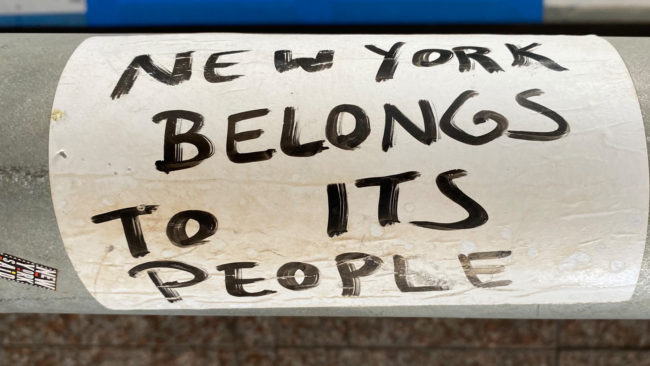 NEW YORK
BELONGS
TO ITS
PEOPLE